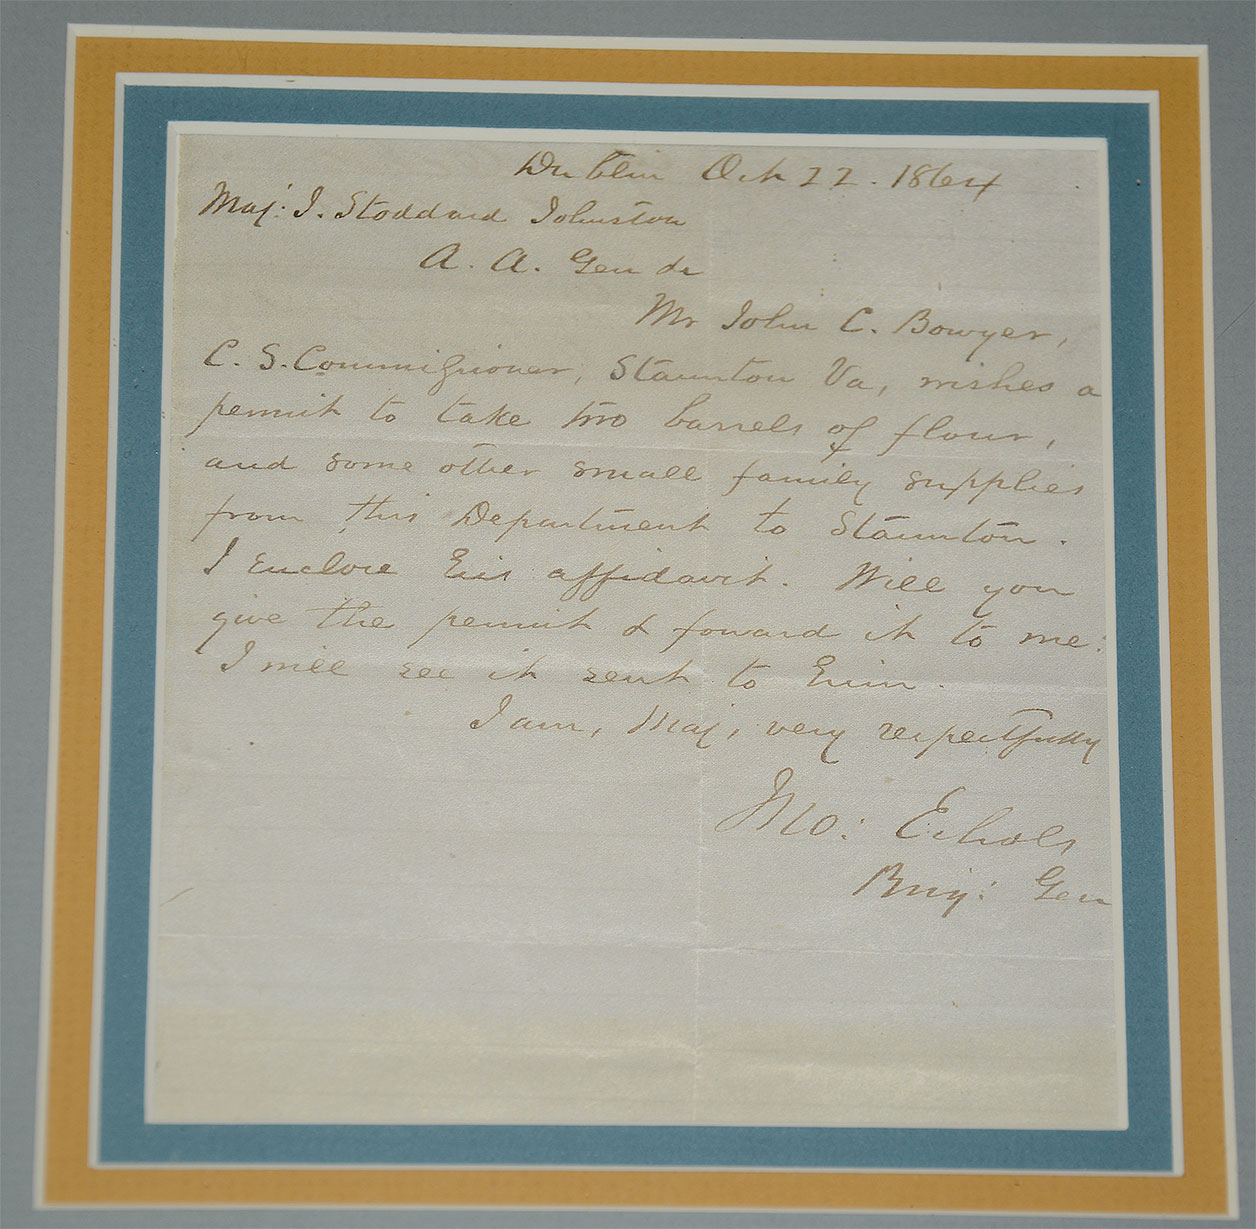 Dublin Oct 22. 1864
Maj: J. Stoddard Johnston
A. A. Gen &c
Mr John C. Bowyer,
C. S. Commissioner, Staunton Va, wishes a
permit to take two barrels of flour,
and some other small family supplies
from this Department to Staunton.
I enclose his affidavit. Will you
give the permit & foward it to me:
I will see it sent to him.
I am, Maj, very respectfully
Jno: Echols
Brig: Gen